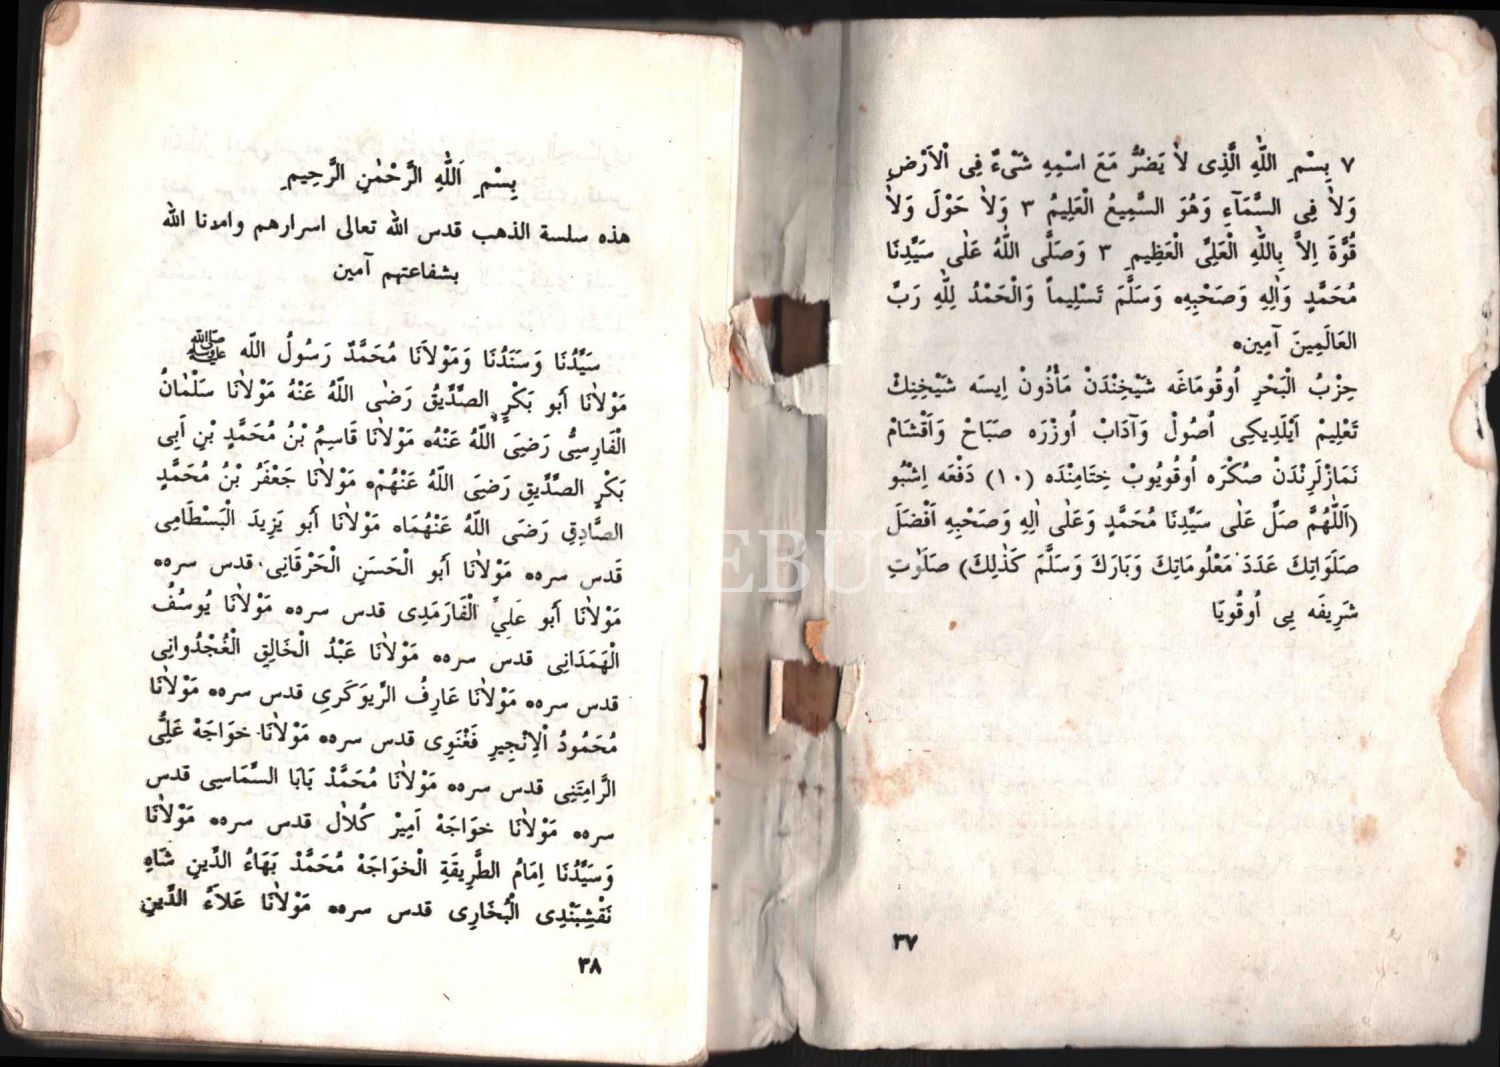 ٧ بِسْمِ اللّٰهِ الَّذِى لاٰ يَضُرُّ مَعَ اسْمِهِ شَىْءٌ فِى اْلاَرْضِ
وَلاٰ فِى السَّمَآءِ وَهُوَ السَّمِيعُ الْعَلِيمُ ٣ وَلاٰ حَوْلَ وَلاٰ
قُوَّةَ اِلاَّ بِاللّٰهِ الْعَلِىِّ الْعَظِيمِ ٣ وَصَلَّى اللّٰهُ عَلٰى سَيِّدِنَا
مُحَمَّدٍ وَاٰلِهِ وَصَحْبِهِ٥ وَسَلَّمَ تَسْلِيماً وَالْحَمْدُ لِلّٰهِ رَبِّ
العَالَمِينَ آمِينَ٥
حِزْبُ الْبَحْرِ اُوقُومَاغَه شَيْخِنْدَنْ مَأْذُونْ اِيسَه شَيْخِنِكْ
تَعْلِيمْ اَيْلَدِيكِى اُصُولْ وَآدَابْ اُوزْرَه صَبَاحْ وَاَقْشَامْ
نَمَازْلَرِنْدَنْ صُكْرَه اُوقُويُوبْ خِتَامِنْدَه (١٠) دَفْعَه اِشْبُو
(اَللّٰهُمَّ صَلِّ عَلٰى سَيِّدِنَا مُحَمَّدٍ وَعَلٰى اٰلِهِ وَصَحْبِهِ اَفْضَلَ
صَلَوَاتِكَ عَدَدَ مَعْلُومَاتِكَ وَبَارِكَ وَسَلَّمَ كَذٰلِكَ) صَلَوٰتِ
شَرِيفَه يِى اُوقُويَا
٣٧
بِسْمِ اَللّٰهِ الرَّحْمٰنِ الرَّحِيمِ
هذه سلسة الذهب قدس الله تعالى اسرارهم وامدنا الله
بشفاعتهم آمين
سَيِّدُنَا وَسَنَدُنَا وَمَوْلاَنَا مُحَمَّدٌ رَسُولُ اللّه ﷺ
مَوْلاٰنَا أَبو بَكْرٍ الصِّدِّيقُ رَضٰى اللّهُ عَنْهُ مَوْلاٰنَا سَلْمٰانُ
الْفَارِسِىُّ رَضِىَ اللّهُ عَنْهُ٥ مَوْلاٰنَا قَاسِمُ بْنُ مُحَمَّدٍ بْنِ اَبِى
بَكْرٍ الصِّدِّيقِ رَضِىَ اللّهُ عَنْهُمْ٥ مَوْلاٰنَا جَعْفَرُ بْنُ مُحَمَّدٍ
الصَّادِقِ رَضَى اللّهُ عَنْهُمَا٥ مَوْلاٰنَا أَبو يَزِيدَ الْبَسْطَامِى
قَدس سره٥ مَوْلاٰنَا أَبو الْحَسَنِ الْخَرْقَانِى قدس سره٥
مَوْلاٰنَا أَبو عَلِىٍّ الْفَارَمَدِى قدس سره٥ مَوْلاٰنَا يُوسُفُ
الْهَمَدَانِى قدس سره٥ مَوْلاٰنَا عَبْدُ الْخَالِقِ الْغُجْدُوانِى
قدس سره٥ مَوْلاٰنَا عَارِفُ الرِّيوَكَرِى قدس سره٥ مَوْلاٰنَا
مُحَمُودُ اْلاِنْجِيرِ فَغْنَوِى قدس سره٥ مَوْلاٰنَا خوَاجَهْ عَلِىُّ
الرَّامِتَنِى قدس سره٥ مَوْلاٰنَا مُحَمَّدْ بَابَا السَّمَاسِى قدس
سره٥ مَوْلاٰنَا خوَاجَهْ اَمِيرْ كُلاٰل قدس سره٥ مَوْلاٰنَا
وَسَيِّدُنَا اِمَامُ الطَّرِيقَةِ الْخوَاجَهْ مُحَمَّدْ بَهَاءُ الدِّينِ شَاهِ
نَقْشِبَنْدِى الْبُخَارِى قدس سره٥ مَوْلاٰنَا عَلاَءُ الدِّينِ
٣٨